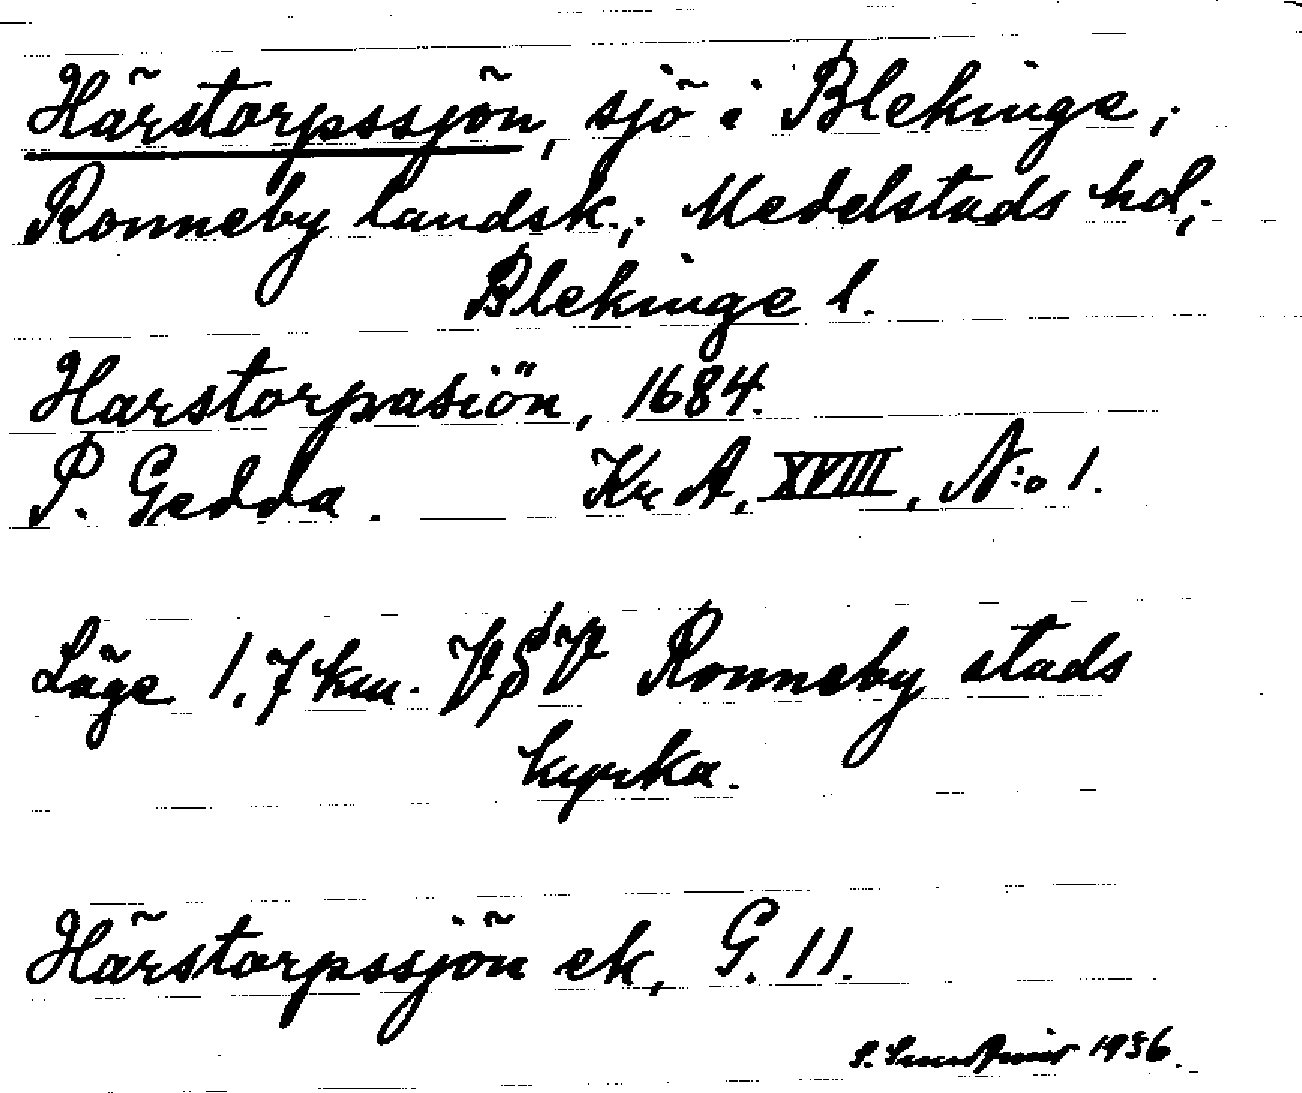 Härstorpssjön, sjö i Blekinge,
Ronneby landsk., Medelstads hd,
Blekinge l.
Harstorpasiön, 1684.
P. Gedda. Kr A, XVIII, N:o 1.
Läge 1,7 km. VSV Ronneby stads
kyrka.
Härstorpssjön ek, G. 11.
1936.